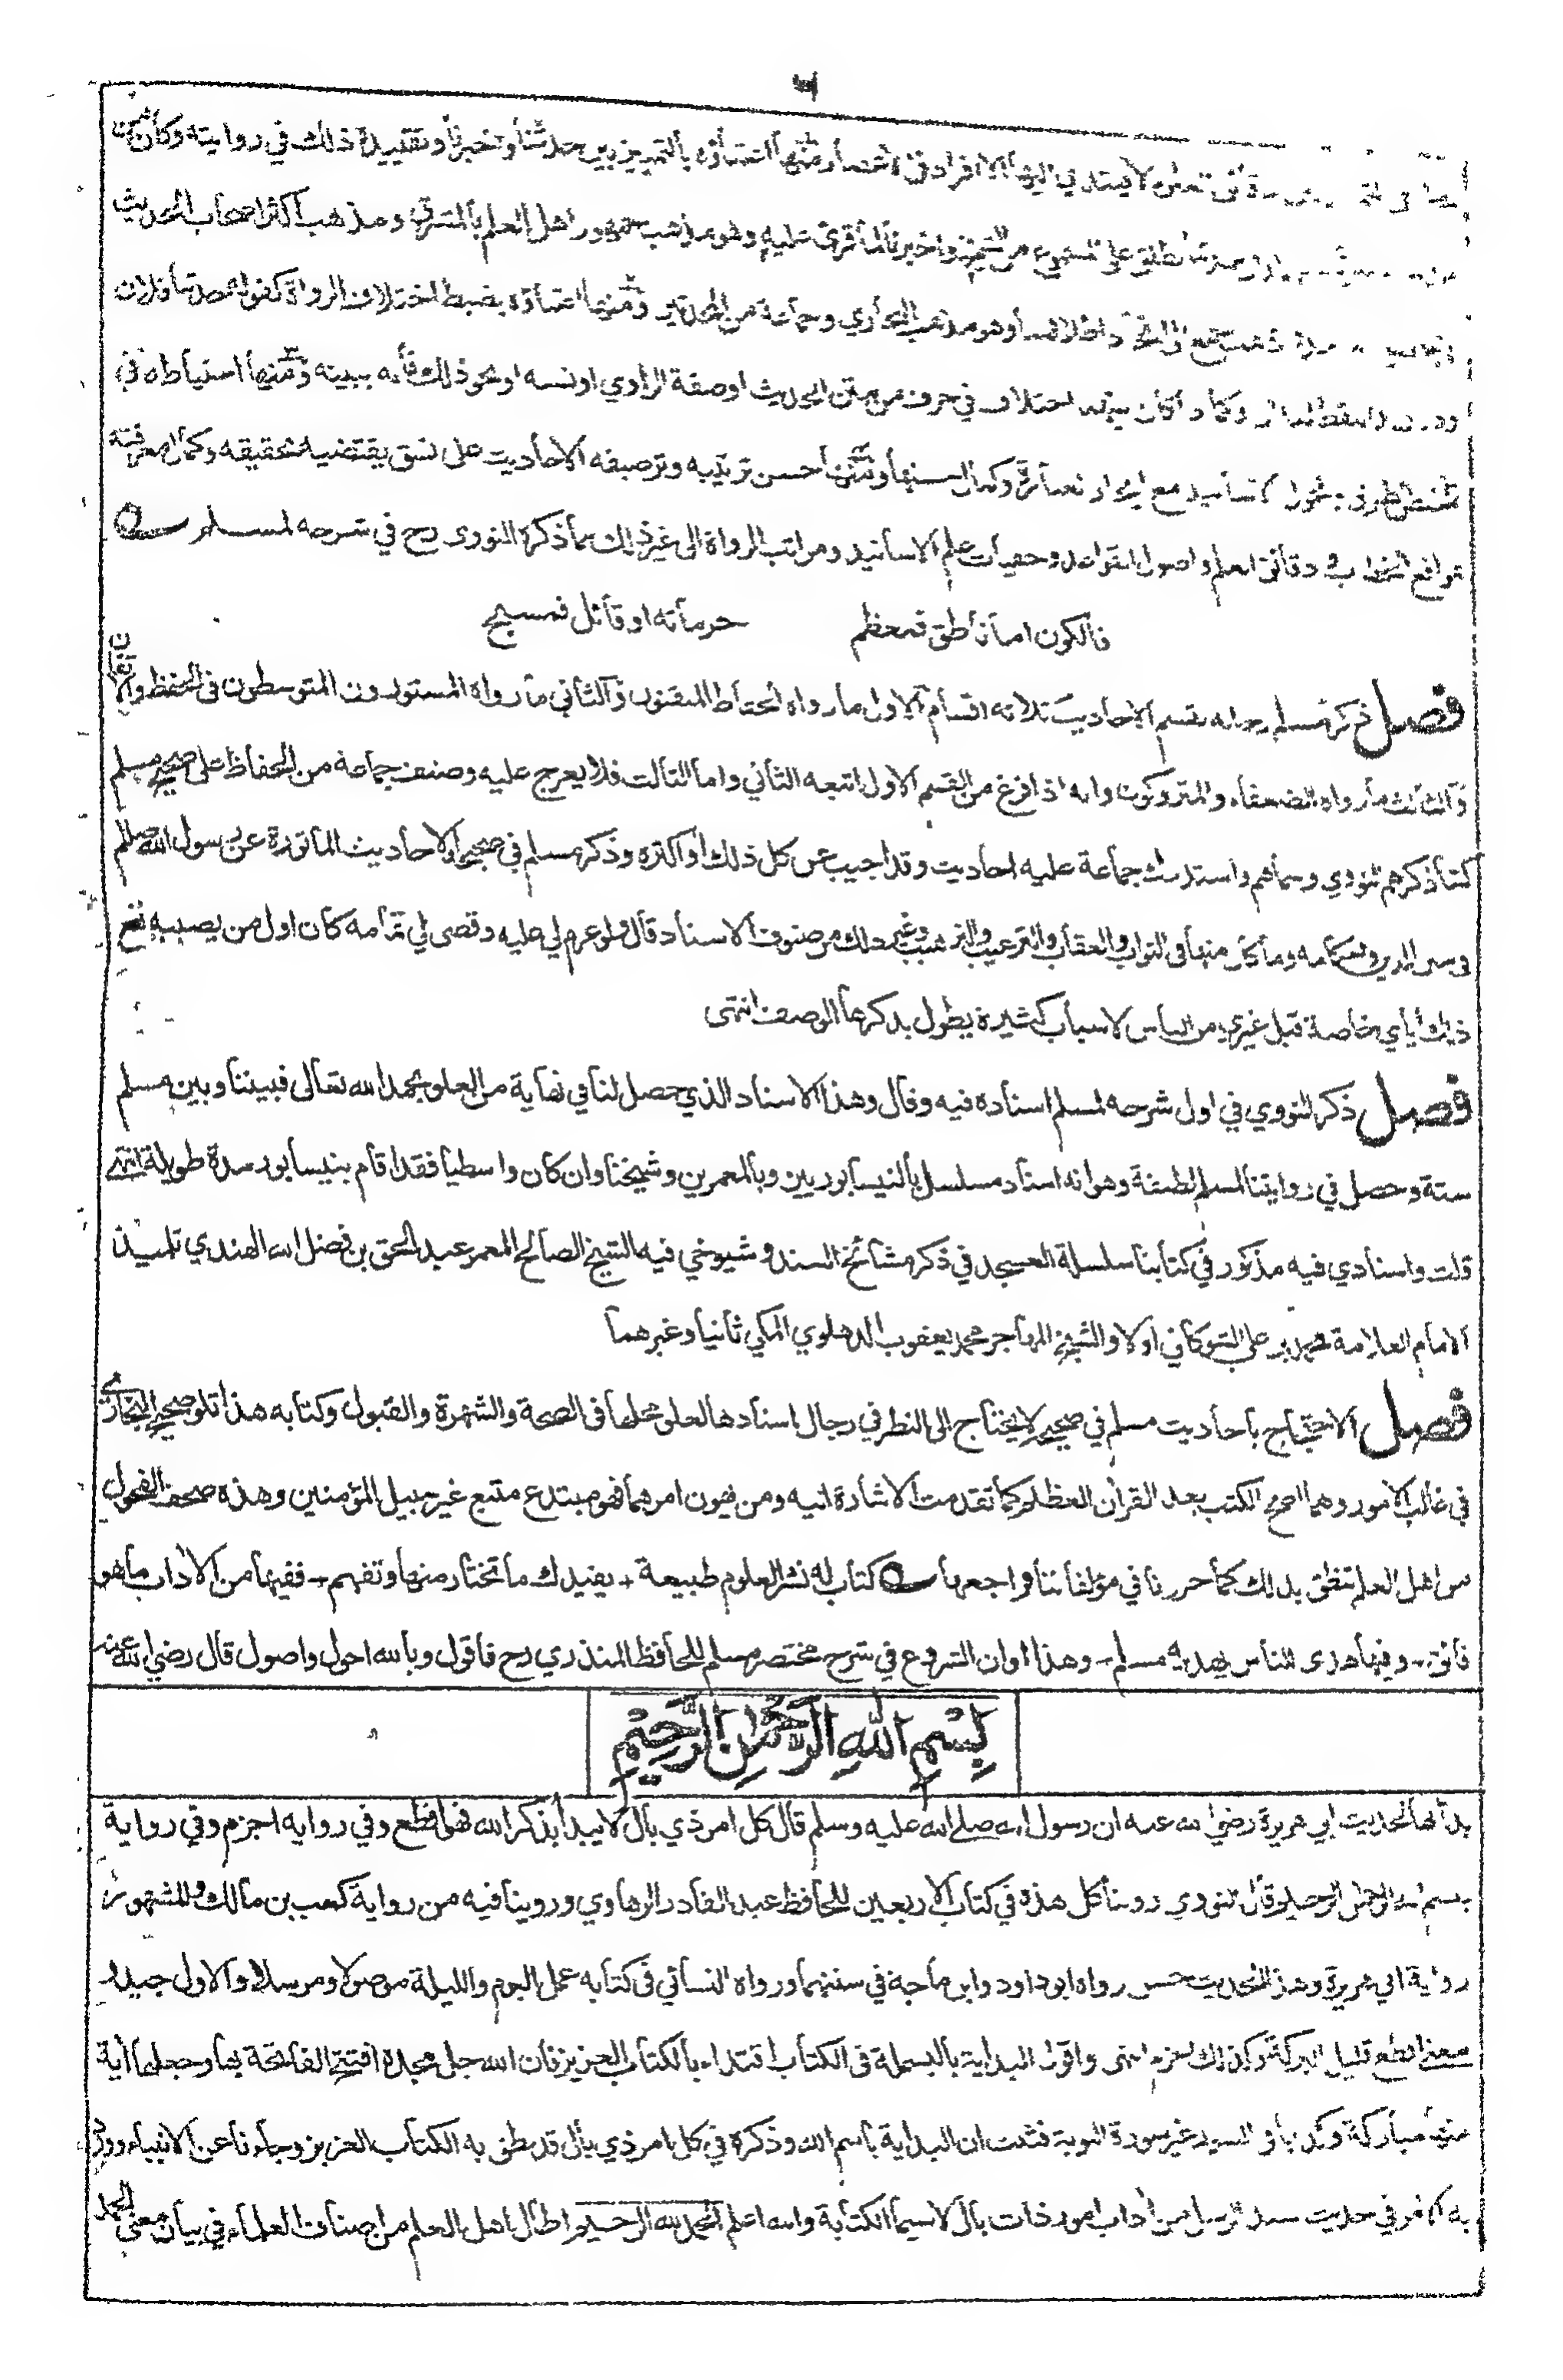 لا يهتدي إليها الا افراد في الاعصار فمنها اعتناؤه بالتمييز بين حدثنا واخبرنا وتقييده ذلك في روايته وكان من
على ما سمعه من الشيخ واخبرنا لما قرئ عليه وهو مذهب جمهور اهل العلم بالمشرق ومذهب اكثر اصحاب الحديث
وهو مذهب البخاري وجماعة من المحدثين ومنها اعتناؤه بضبط اختلاف الرواة كقوله حدثنا فلان
اختلاف في حرف من متن الحديث او صفة الراوي او نسبه او نحو ذلك فانه يبينه ومنها احتياطه في
تلخيص الطرق مع ايجاز العبارة وكمال حسنها ومنها حسن ترتيبه وترصيفه الاحاديث على نسق يقتضيه تحقيقه وكمال معرفته
بمواقع الخطاب ودقائق العلم واصول القواعد وخفيات علم الاسانيد ومراتب الرواة الى غير ذلك مما ذكره النووي رح في شرحه لمسلم
فالكون اما ناطق فمعظم حرماته او قائل فمسبح
فصل ذكر مسلم رحمه الله تقسيم الاحاديث ثلاثة اقسام الاول ما رواه الحفاظ المتقنون والثاني ما رواه المستورون المتوسطون في الحفظ والاتقان
والثالث ما رواه الضعفاء والمتروكون وانه اذا فرغ من القسم الاول اتبعه الثاني واما الثالث فلا يعرج عليه وصنف جماعة من الحفاظ على صحيح مسلم
كتبا ذكرهم النووي وسماهم واستدرك جماعة عليه احاديث وقد اجيب عن كل ذلك او اكثره وذكر مسلم في صحيحه الاحاديث الماثورة عن رسول الله صلم
في سنن الدين واحكامه وما كان منها في الثواب والعقاب والترغيب والترهيب وغير ذلك من صنوف الاسناد قال ولو عزم لي عليه وقضي لي تمامه كان اول من يصيبه نفع
ذلك اياي خاصة قبل غيري من الناس لاسباب كثيرة يطول بذكرها الوصف انتهى
فصل ذكر النووي في اول شرحه لمسلم اسناده فيه وقال وهذا الاسناد الذي حصل لنا في نهاية من العلو بحمد الله تعالى فبيننا وبين مسلم
ستة وحصل في روايتنا لمسلم لطيفة وهو انه اسناد مسلسل بالنيسابوريين وبالمعمرين وشيخنا وان كان واسطيا فقد اقام بنيسابور مدة طويلة انتهى
قلت واسنادي فيه مذكور في كتابنا سلسلة العسجد في ذكر مشائخ السند وشيوخي فيه الشيخ الصالح المعمر عبد الحق بن فضل الله الهندي تلميذ
الامام العلامة محمد بن علي الشوكاني اولا والشيخ المهاجر محمد يعقوب الدهلوي المكي ثانيا وغيرهما
فصل الاحتجاج باحاديث مسلم في صحيحه لا يحتاج الى النظر في رجال اسنادها لعلو محلها في الصحة والشهرة والقبول وكتابه هذا تلو صحيح البخاري
في غالب الامور وهما اصح الكتب بعد القرآن العظيم كما تقدمت الاشارة اليه ومن يهون امرهما فهو مبتدع متبع غير سبيل المؤمنين وهذه صحف الفحول
من اهل العلم تنطق بذلك كما حررنا في مؤلفاتنا فراجعها كتاب له نشر العلوم طبيعة + يفيدك ما تختار منها وتفهم + ففيها من الآداب ما هو
فائق - وفيها هدى للناس يهديه مسلم - وهذا اوان الشروع في شرح مختصر مسلم للحافظ المنذري رح فاقول وبالله احول واصول قال رضي الله عنه
بِسْمِ اللهِ الرَّحْمٰنِ الرَّحِيْمِ
بدأ بها لحديث ابي هريرة رضي الله عنه ان رسول الله صلى الله عليه وسلم قال كل امر ذي بال لا يبدأ بذكر الله فهو اقطع وفي رواية اجزم وفي رواية
بسم الله الرحمن الرحيم وقال النووي روينا كل هذه في كتاب الاربعين للحافظ عبد القادر الرهاوي وروينا فيه من رواية كعب بن مالك والمشهور
رواية ابي هريرة وهذا الحديث حسن رواه ابو داود وابن ماجة في سننهما ورواه النسائي في كتابه عمل اليوم والليلة موصولا ومرسلا والاول جيد
معنى اقطع قليل البركة وكذلك اجزم انتهى واقول البداية بالبسملة في الكتاب اقتداء بالكتاب العزيز فان الله جل مجده افتتح الفاتحة بها وجعلها آية
منها مباركة غير سورة التوبة فثبت ان البداية باسم الله وذكره في كل امر ذي بال قد نطق به الكتاب العزيز وجاءنا عن الانبياء وورد
به الامر في حديث سيد الرسل من آداب امور ذات بال لا سيما الكتابة والله اعلم الحمد لله الرحيم اطال اهل العلم من اصناف العلماء في بيان معنى الحمد